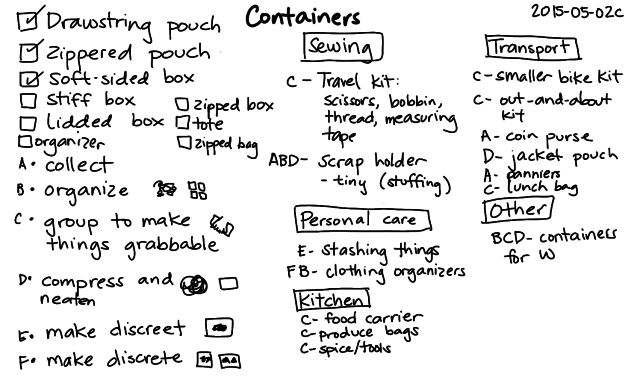 Containers
2015-05-02c
Drawstring pouch
Zippered pouch
Soft-sided box
stiff box
Lidded box
organizer
zipped box
tote
zipped bag
A. collect
B. organize
C. group to make
things grabbable
D. compress and
neaten
E. make discreet
F. make discrete
Sewing
C - Travel kit:
scissors, bobbin,
thread, measuring
tape
ABD - Scrap holder
- tiny (stuffing)
Personal care
E - stashing things
FB - clothing organizers
Kitchen
C - food carrier
C - produce bags
C - spice/tools
Transport
C - smaller bike kit
C - out-and-about
kit
A - coin purse
D - jacket pouch
A - panniers
C - lunch bag
Other
BCD - containers
for W